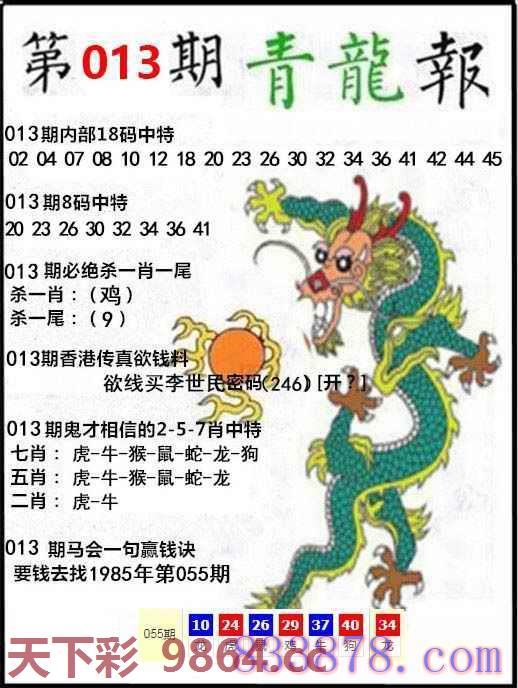 第013期青龍報
013期内部18码中特
02 04 07 08 10 12 18 20 23 26 30 32 34 36 41 42 44 45
013期8码中特
20 23 26 30 32 34 36 41
013期必绝杀一肖一尾
杀一肖：(鸡)
杀一尾：(9)
013期香港传真欲钱料
欲线买李世民密码(246)[开?]
013期鬼才相信的2-5-7肖中特
七肖：虎-牛-猴-鼠-蛇-龙-狗
五肖：虎-牛-猴-鼠-蛇-龙
二肖：虎-牛
013期马会一句赢钱诀
要钱去找1985年第055期
055期 10 24 26 29 37 40 34
龙 虎 鼠 鸡 牛 狗 龙
天下彩 9864.cc
838878.com